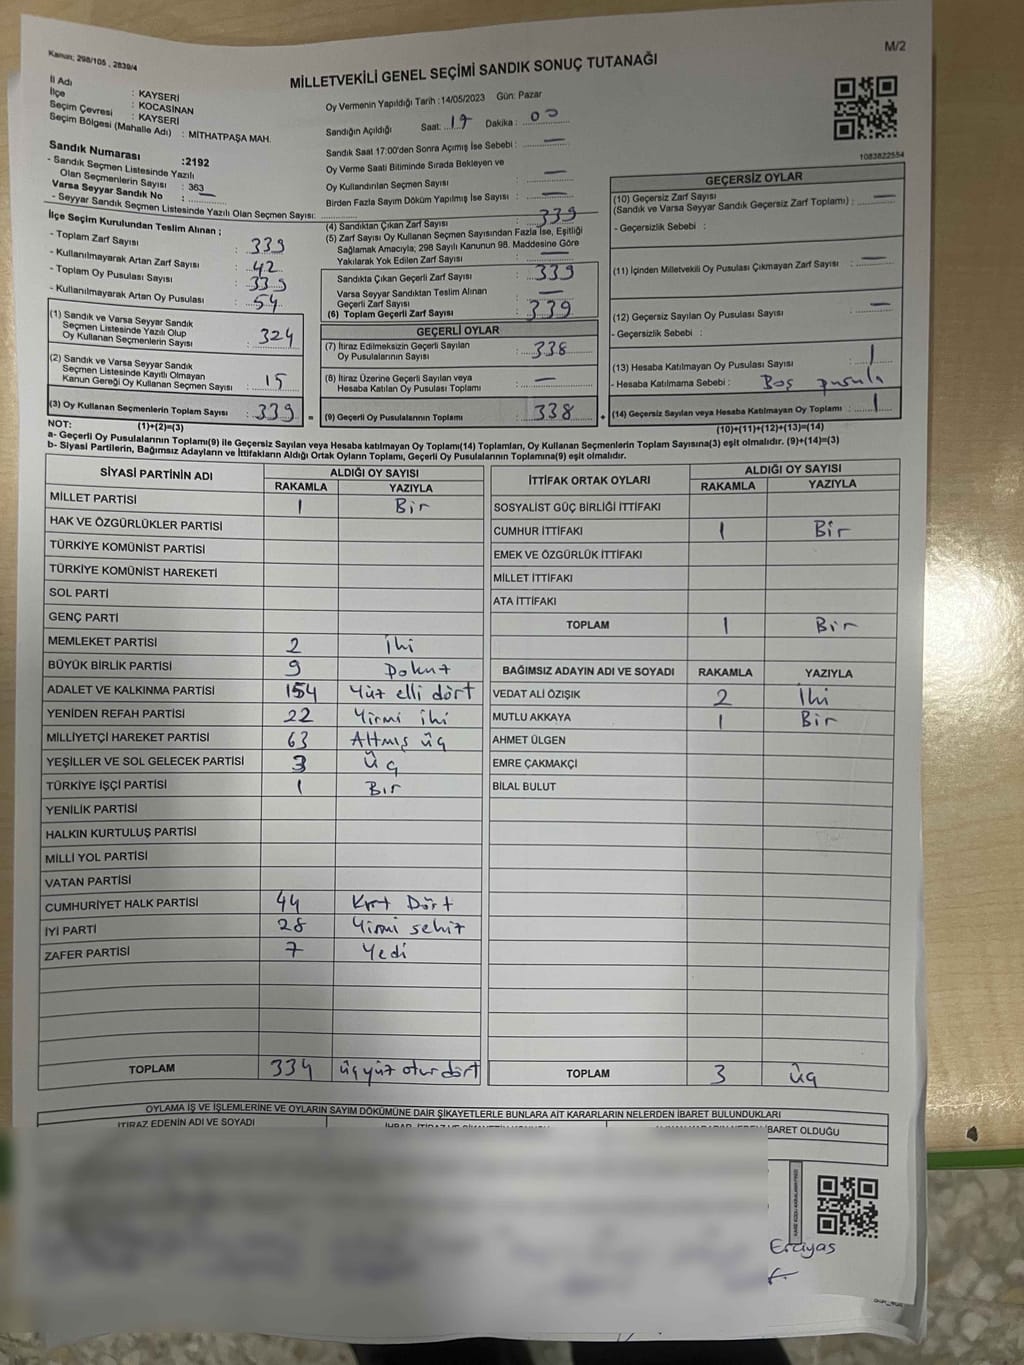 Kanun; 298/105 , 2839/4
M/2
MİLLETVEKİLİ GENEL SEÇİMİ SANDIK SONUÇ TUTANAĞI
İl Adı : KAYSERİ
İlçe : KOCASİNAN
Seçim Çevresi : KAYSERİ
Seçim Bölgesi (Mahalle Adı) : MİTHATPAŞA MAH.
Oy Vermenin Yapıldığı Tarih :14/05/2023 Gün: Pazar
Sandığın Açıldığı Saat: 19 Dakika : 00
Sandık Saat 17:00'den Sonra Açımış İse Sebebi : —
Oy Verme Saati Bitiminde Sırada Bekleyen ve
Oy Kullandırılan Seçmen Sayısı : —
Birden Fazla Sayım Döküm Yapılmış İse Sayısı : —
1083822554
Sandık Numarası :2192
- Sandık Seçmen Listesinde Yazılı
Olan Seçmenlerin Sayısı : 363
Varsa Seyyar Sandık No : —
- Seyyar Sandık Seçmen Listesinde Yazılı Olan Seçmen Sayısı:
İlçe Seçim Kurulundan Teslim Alınan ;
- Toplam Zarf Sayısı : 339
- Kullanılmayarak Artan Zarf Sayısı : 42
- Toplam Oy Pusulası Sayısı : 339
- Kullanılmayarak Artan Oy Pusulası : 54
(1) Sandık ve Varsa Seyyar Sandık
Seçmen Listesinde Yazılı Olup
Oy Kullanan Seçmenlerin Sayısı : 324
(2) Sandık ve Varsa Seyyar Sandık
Seçmen Listesinde Kayıtlı Olmayan
Kanun Gereği Oy Kullanan Seçmen Sayısı : 15
(3) Oy Kullanan Seçmenlerin Toplam Sayısı : 339 =
(4) Sandıktan Çıkan Zarf Sayısı : 339
(5) Zarf Sayısı Oy Kullanan Seçmen Sayısından Fazla İse, Eşitliği
Sağlamak Amacıyla; 298 Sayılı Kanunun 98. Maddesine Göre
Yakılarak Yok Edilen Zarf Sayısı : —
Sandıkta Çıkan Geçerli Zarf Sayısı : 339
Varsa Seyyar Sandıktan Teslim Alınan
Geçerli Zarf Sayısı : —
(6) Toplam Geçerli Zarf Sayısı : 339
GEÇERLİ OYLAR
(7) İtiraz Edilmeksizin Geçerli Sayılan
Oy Pusulalarının Sayısı : 338
(8) İtiraz Üzerine Geçerli Sayılan veya
Hesaba Katılan Oy Pusulası Toplamı : —
(9) Geçerli Oy Pusulalarının Toplamı : 338 +
GEÇERSİZ OYLAR
(10) Geçersiz Zarf Sayısı
(Sandık ve Varsa Seyyar Sandık Geçersiz Zarf Toplamı) : —
- Geçersizlik Sebebi :
(11) İçinden Milletvekili Oy Pusulası Çıkmayan Zarf Sayısı : —
(12) Geçersiz Sayılan Oy Pusulası Sayısı : —
- Geçersizlik Sebebi :
(13) Hesaba Katılmayan Oy Pusulası Sayısı : 1
- Hesaba Katılmama Sebebi : Boş pusula
(14) Geçersiz Sayılan veya Hesaba Katılmayan Oy Toplamı : 1
NOT: (1)+(2)=(3)
(10)+(11)+(12)+(13)=(14)
a- Geçerli Oy Pusulalarının Toplamı(9) ile Geçersiz Sayılan veya Hesaba katılmayan Oy Toplamı(14) Toplamları, Oy Kullanan Seçmenlerin Toplam Sayısına(3) eşit olmalıdır. (9)+(14)=(3)
b- Siyasi Partilerin, Bağımsız Adayların ve İttifakların Aldığı Ortak Oyların Toplamı, Geçerli Oy Pusulalarının Toplamına(9) eşit olmalıdır.
SİYASİ PARTİNİN ADI ALDIĞI OY SAYISI
RAKAMLA YAZIYLA
MİLLET PARTİSİ 1 Bir
HAK VE ÖZGÜRLÜKLER PARTİSİ
TÜRKİYE KOMÜNİST PARTİSİ
TÜRKİYE KOMÜNİST HAREKETİ
SOL PARTİ
GENÇ PARTİ
MEMLEKET PARTİSİ 2 İki
BÜYÜK BİRLİK PARTİSİ 9 Dokuz
ADALET VE KALKINMA PARTİSİ 154 Yüz elli dört
YENİDEN REFAH PARTİSİ 22 Yirmi iki
MİLLİYETÇİ HAREKET PARTİSİ 63 Altmış üç
YEŞİLLER VE SOL GELECEK PARTİSİ 3 Üç
TÜRKİYE İŞÇİ PARTİSİ 1 Bir
YENİLİK PARTİSİ
HALKIN KURTULUŞ PARTİSİ
MİLLİ YOL PARTİSİ
VATAN PARTİSİ
CUMHURİYET HALK PARTİSİ 44 Kırk Dört
İYİ PARTİ 28 Yirmi sekiz
ZAFER PARTİSİ 7 Yedi
TOPLAM 334 üçyüz otuz dört
İTTİFAK ORTAK OYLARI ALDIĞI OY SAYISI
RAKAMLA YAZIYLA
SOSYALİST GÜÇ BİRLİĞİ İTTİFAKI
CUMHUR İTTİFAKI 1 Bir
EMEK VE ÖZGÜRLÜK İTTİFAKI
MİLLET İTTİFAKI
ATA İTTİFAKI
TOPLAM 1 Bir
BAĞIMSIZ ADAYIN ADI VE SOYADI RAKAMLA YAZIYLA
VEDAT ALİ ÖZIŞIK 2 İki
MUTLU AKKAYA 1 Bir
AHMET ÜLGEN
EMRE ÇAKMAKÇİ
BİLAL BULUT
TOPLAM 3 üç
OYLAMA İŞ VE İŞLEMLERİNE VE OYLARIN SAYIM DÖKÜMÜNE DAİR ŞİKAYETLERLE BUNLARA AİT KARARLARIN NELERDEN İBARET BULUNDUKLARI
İTİRAZ EDENİN ADI VE SOYADI
İBARET OLDUĞU